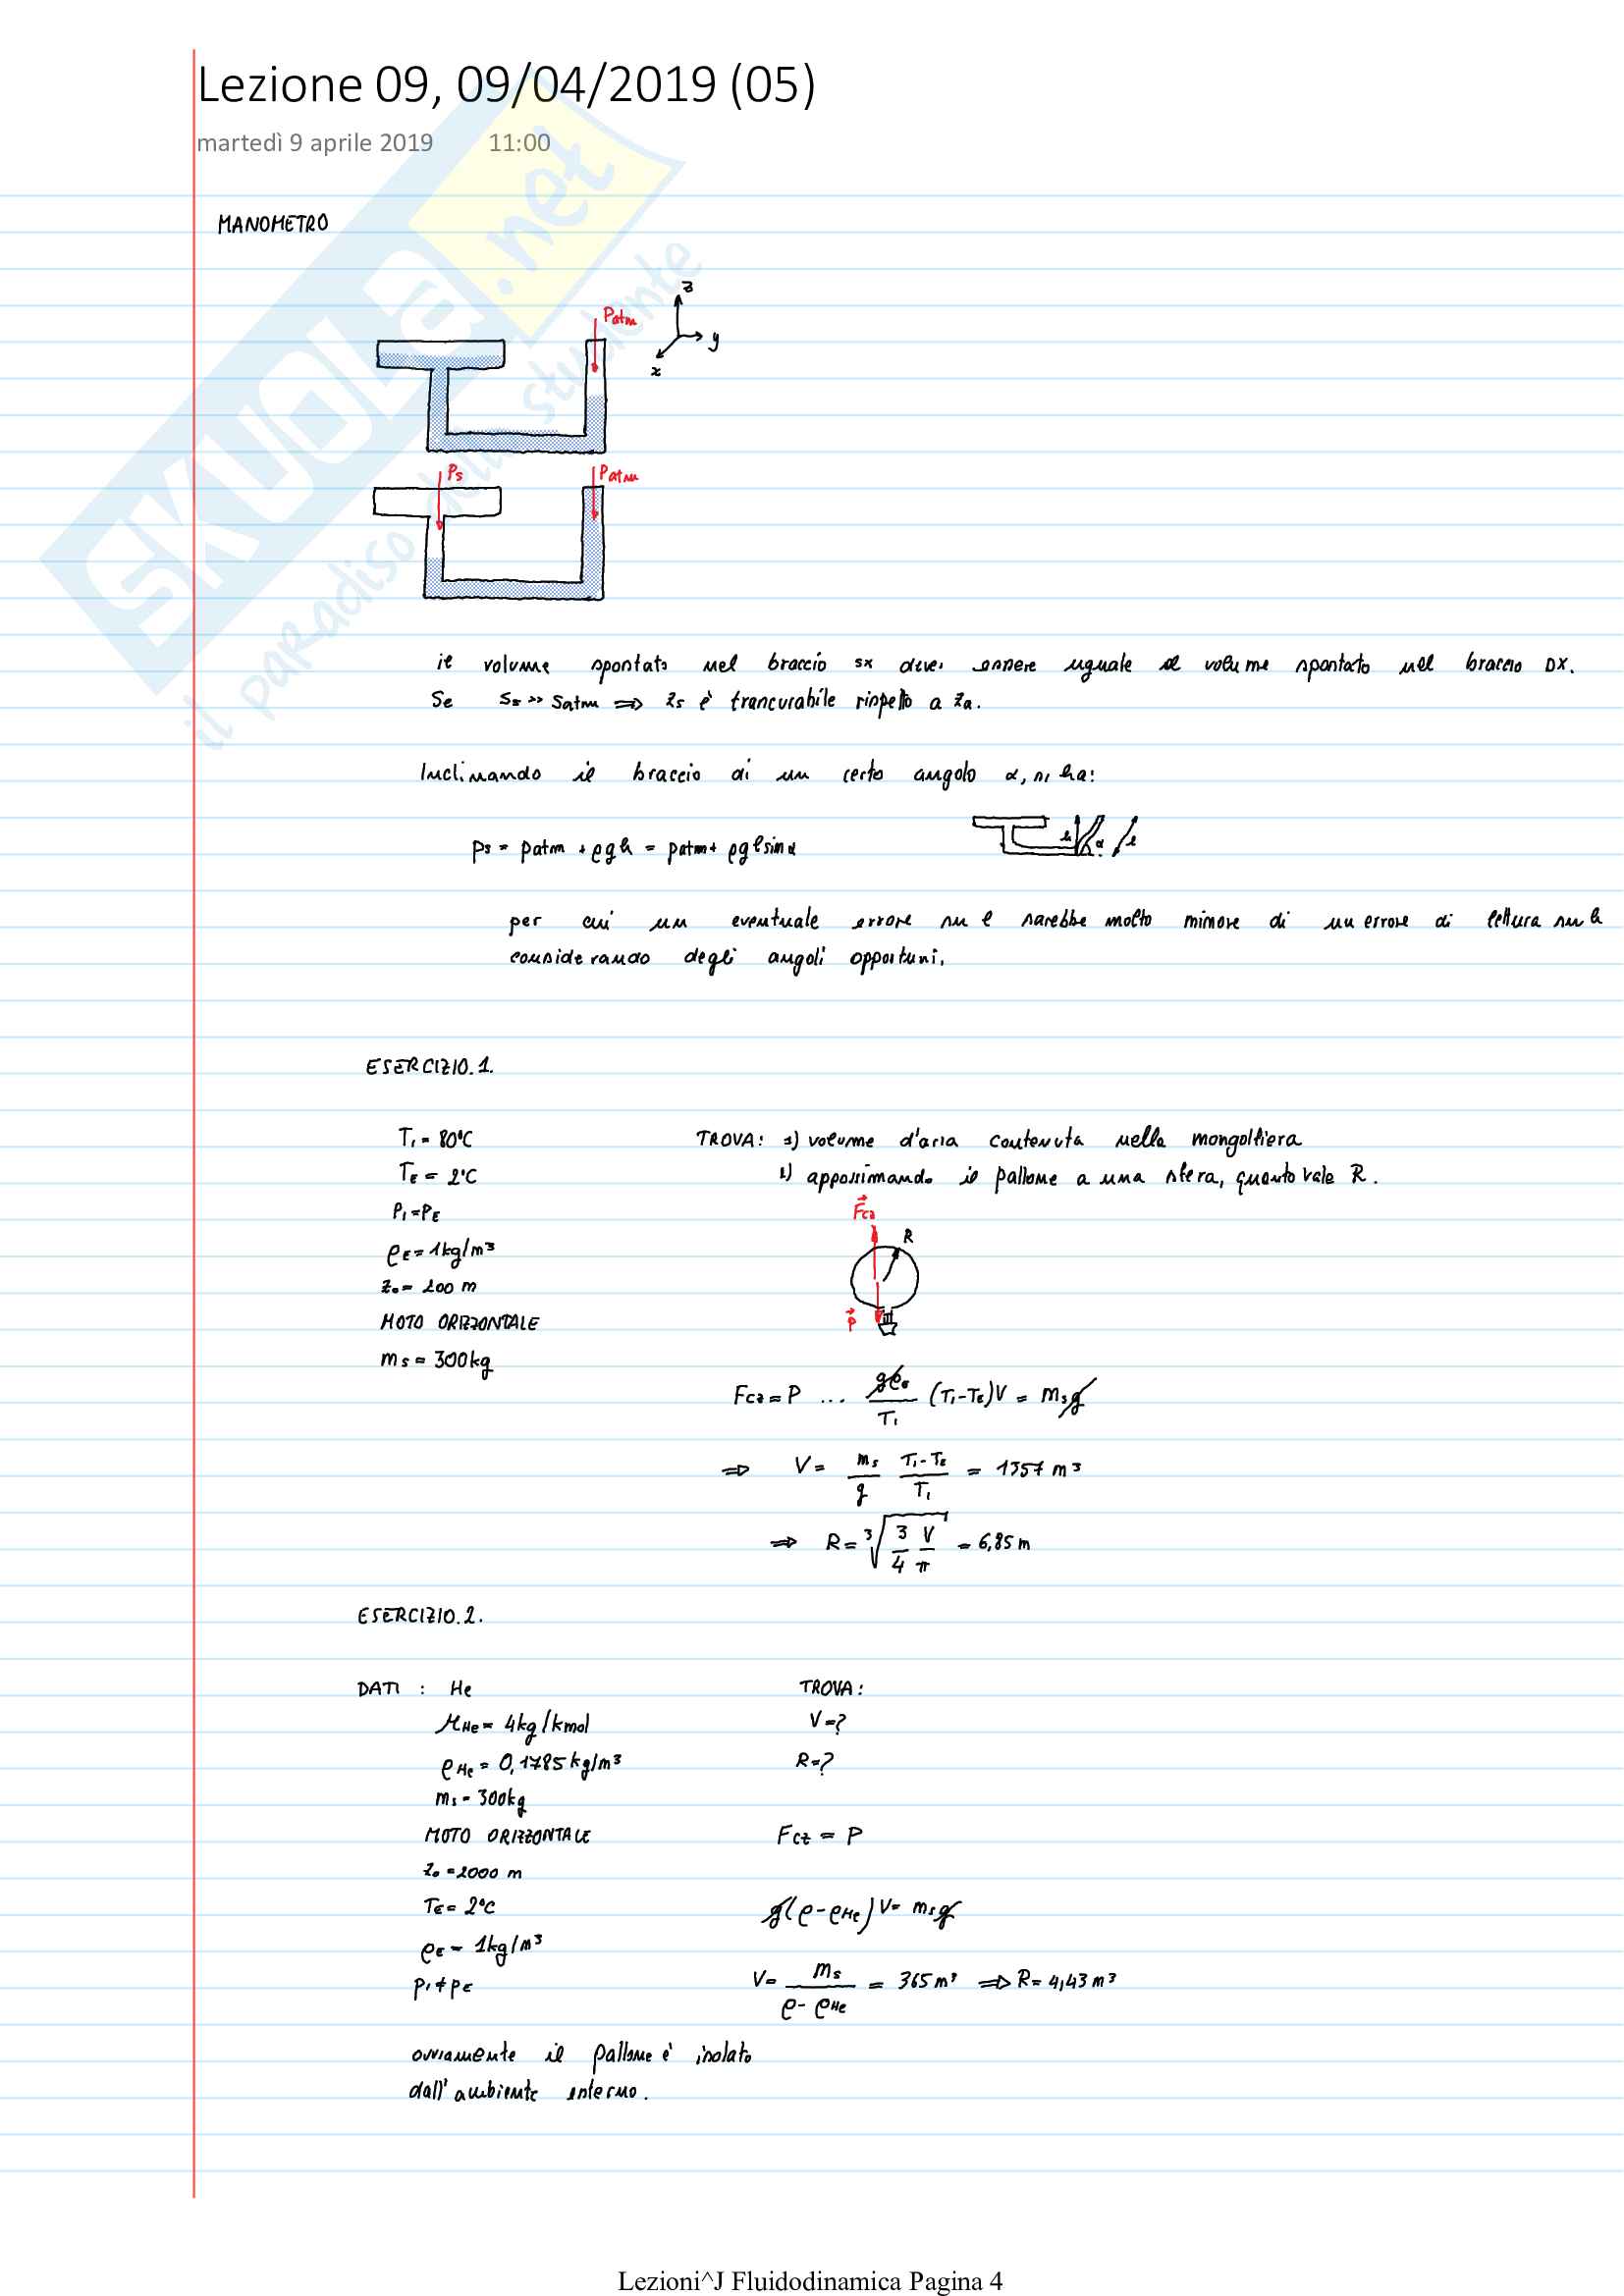 Lezione 09, 09/04/2019 (05)
martedì 9 aprile 2019 11:00
SKUOLA.net
il paradiso dello studente
MANOMETRO
Patm
z
y
x
Ps
Patm
il volume spostato nel braccio sx deve essere uguale al volume spostato nel braccio DX.
Se Ss >> Satm ⇒ zs è trancurabile rispetto a za.
Inclinando il braccio di un certo angolo α, si ha:
ps = patm + ρgh = patm + ρgl sinα
h α l
per cui un eventuale errore su l sarebbe molto minore di un errore di lettura su h
considerando degli angoli opportuni.
ESERCIZIO.1.
T₁ = 80°C
TE = 2°C
P₁ = PE
ρE = 1kg/m³
z₀ = 200 m
MOTO ORIZZONTALE
ms = 300kg
TROVA: 1) volume d'aria contenuta nella mongolfiera
2) appossimando il pallone a una sfera, quanto vale R.
Fcz
R
P
Fcz = P ... gρE/T₁ (T₁-TE)V = msg
⇒ V = ms/g T₁-TE/T₁ = 1357 m³
⇒ R = ³√(3/4 V/π) = 6,85 m
ESERCIZIO.2.
DATI : He
MHe = 4kg/kmol
ρHe = 0,1785 kg/m³
ms = 300kg
MOTO ORIZZONTALE
z₀ = 2000 m
TE = 2°C
ρE = 1kg/m³
P₁ ≠ PE
TROVA:
V=?
R=?
Fcz = P
g(ρ-ρHe)V = msg
V = ms/ρ-ρHe = 365 m³ ⇒ R = 4,43 m³
ovviamente il pallone è isolato
dall'ambiente esterno.
Lezioni^J Fluidodinamica Pagina 4